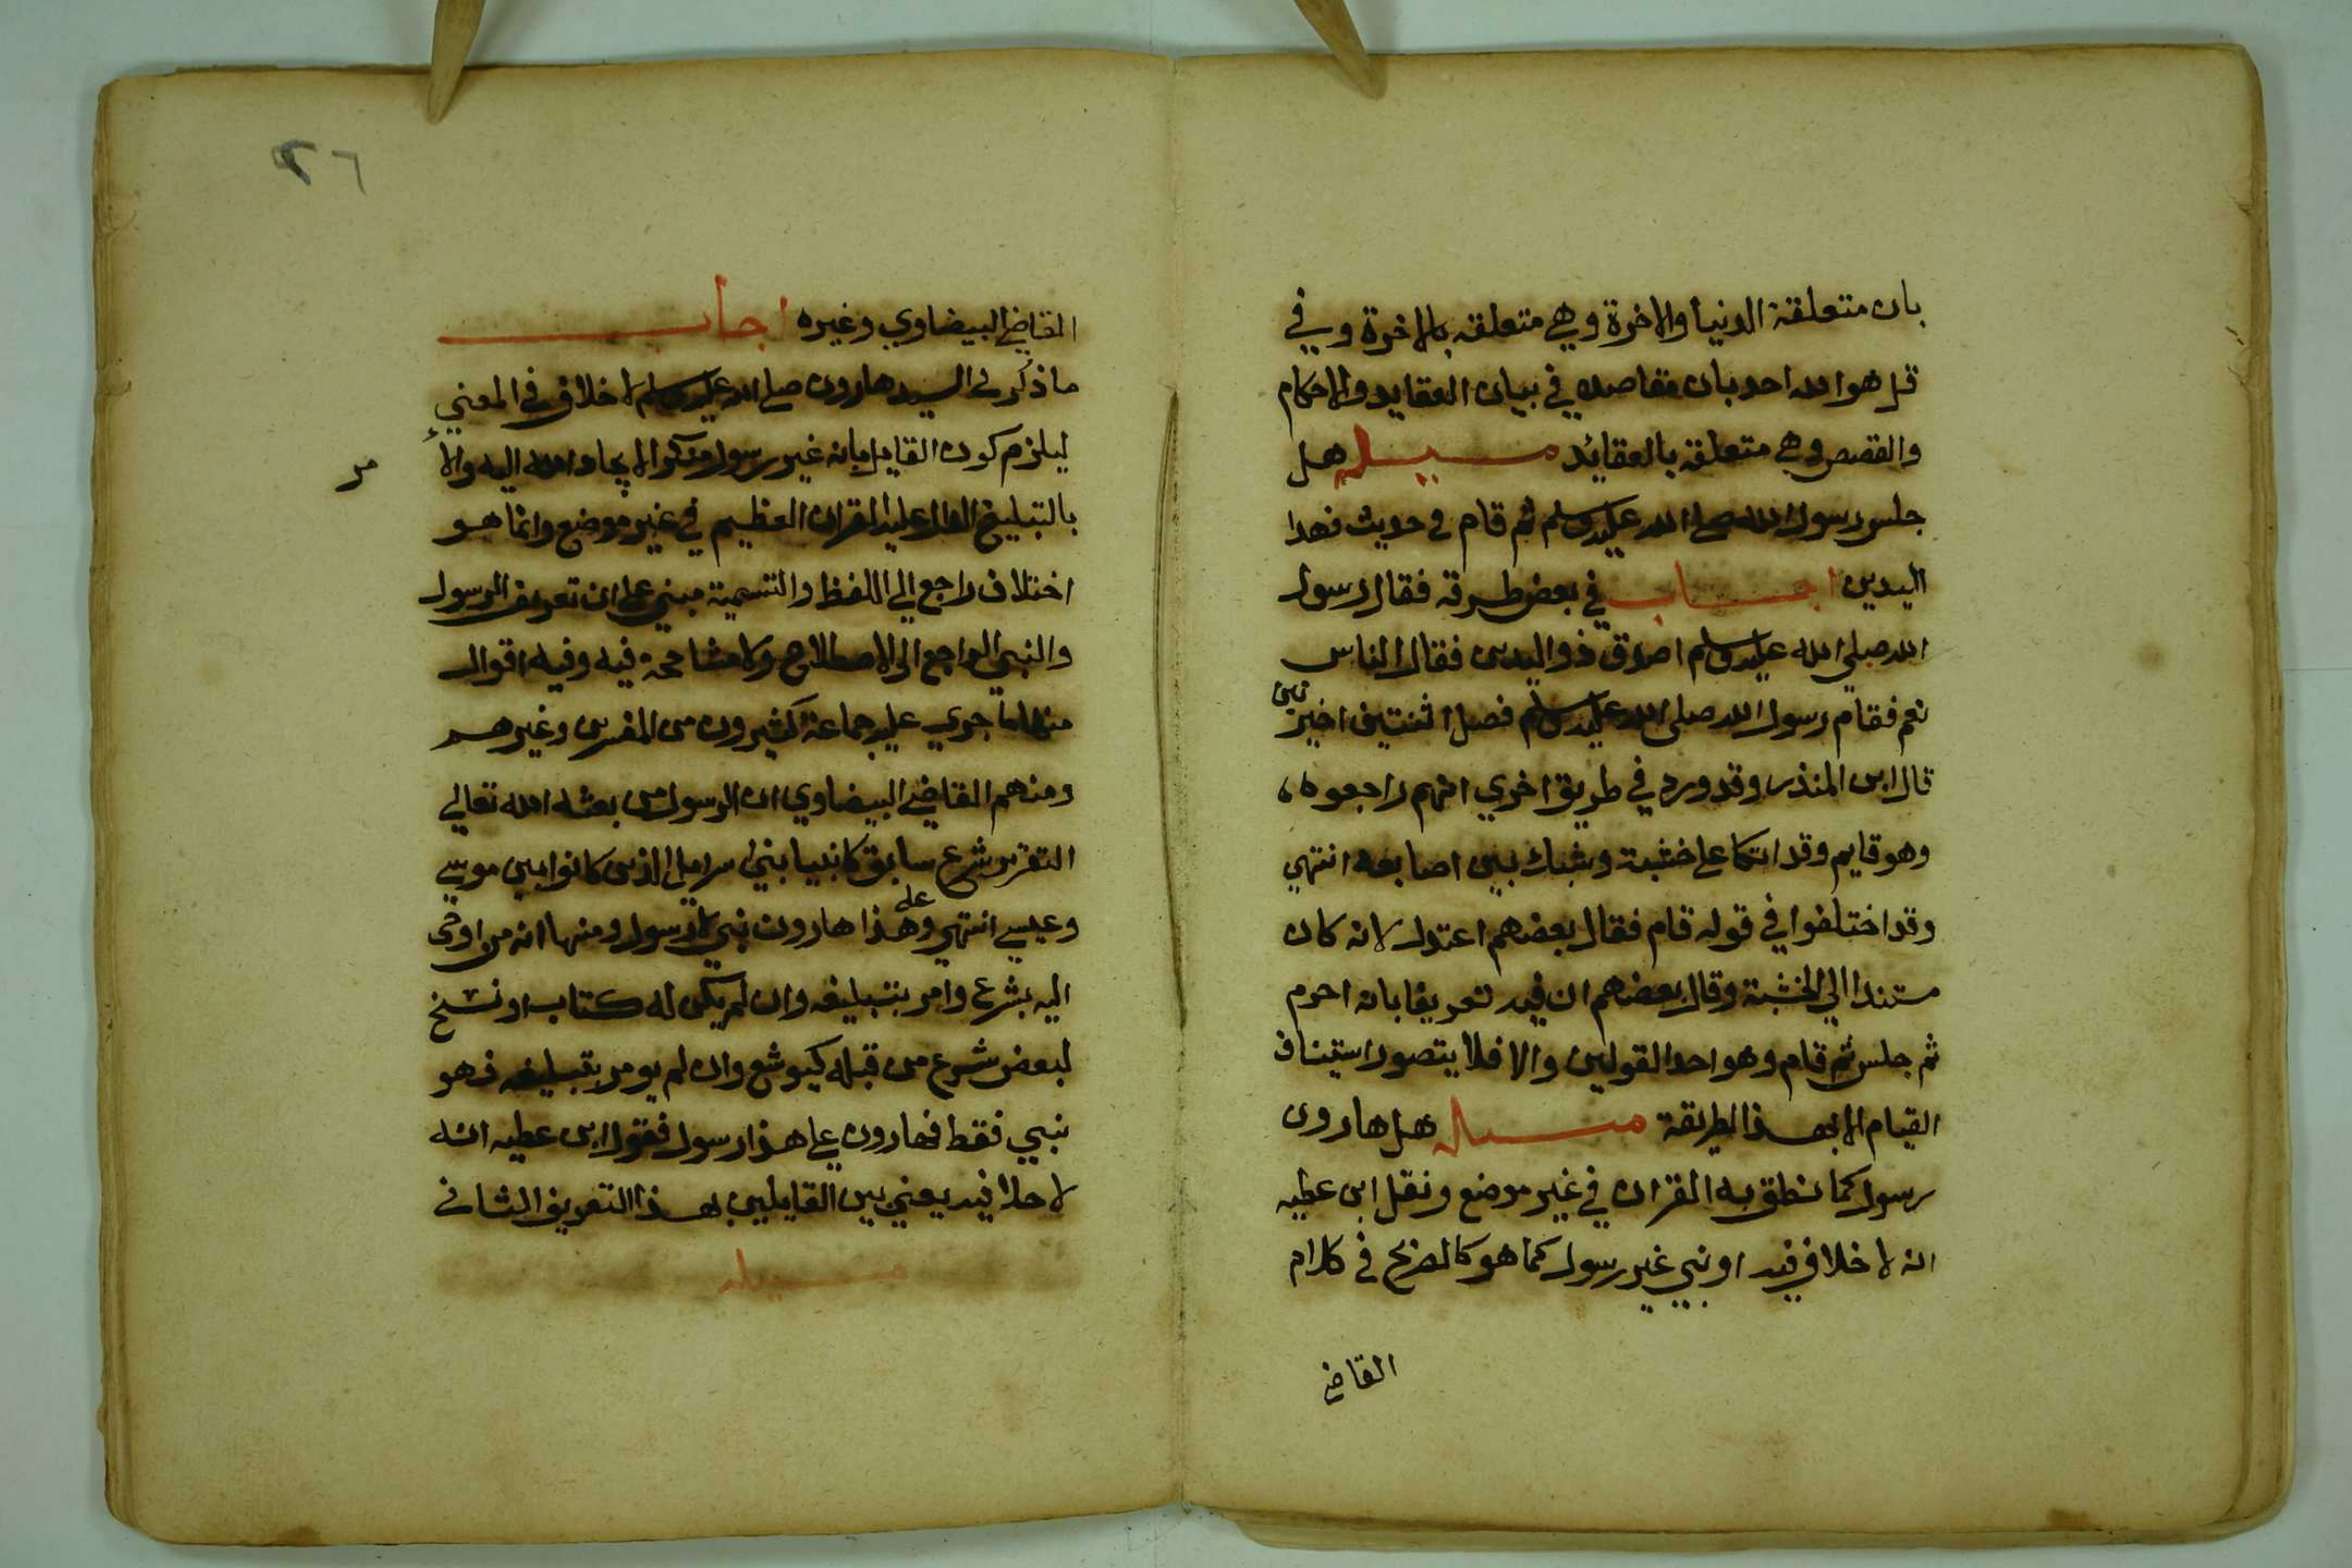 بان متعلقة الدنيا والاخرة وهي متعلقه بالاخرة وفي
قل هو الله احد بان مقاصده في بيان العقايد والاحكام
والقصص وهي متعلقة بالعقائد مسيله هل
جلس رسول الله صلى الله عليه وسلم ثم قام في حديث فهذا
اليدين اجاب في بعض طرقه فقال رسول
الله صلي الله عليه وسلم اصدق ذو اليدين فقال الناس
نعم فقام رسول الله صلى الله عليه وسلم فصل اثنتين اخير تين
قال ابن المنذر وقد ورد في طريق اخري انهم راجعوه
وهو قايم وقد اتكا على خشبة وشبك بين اصابعه انتهي
وقد اختلفوا في قوله قام فقال بعضهم اعتدل لانه كان
مستندا الي الخشبة وقال بعضهم ان فيه تعريفا بانه احرم
ثم جلس ثم قام وهو احد القولين والا فلا يتصور استيناف
القيام الا بهذا الطريقة مسيله هل هارون
رسول كما نطق به القران في غير موضع ونقل ابن عطيه
انه لا خلاف فيه او نبي غير رسول كما هو كالصريح في كلام
القاضي
٢٦
القاضي البيضاوي وغيره اجاب
ما ذكر في السيد هارون صلى الله عليه وسلم لا خلاف في المعني
ليلزم كون القايل بانه غير رسول منكر الايحاء الله اليه والا
مر
بالتبليغ الدال عليه القران العظيم في غير موضع وانما هو
اختلاف راجع الي اللفظ والتسمية مبني على ان تعريف الرسول
والنبي الراجع الى الاصطلاح ولا مشاححة فيه وفيه اقوال
منها ما جري عليه جماعة كثيرون من المفسرين وغيرهم
ومنهم القاضي البيضاوي ان الرسول من بعثه الله تعالي
التقرير شرع سابق كانبيا بني اسرايل الذين كانوا بين موسي
وعيسي انتهي وعلى هذا هارون نبي لا رسول ومنها انه من اوحى
اليه بشرع وامر بتبليغه وان لم يكن له كتاب او نسخ
لبعض شرع من قبله كيوشع وان لم يومر بتبليغه فهو
نبي فقط فهارون على هذا رسول فقول ابن عطيه انه
لا خلاف فيه يعني بين القايلين بهذا التعريف الثاني
مسيله